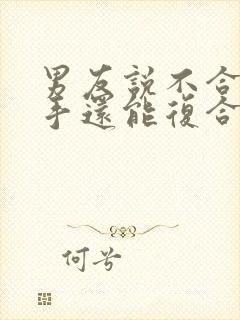 男友說不合
手還能復合
何兮